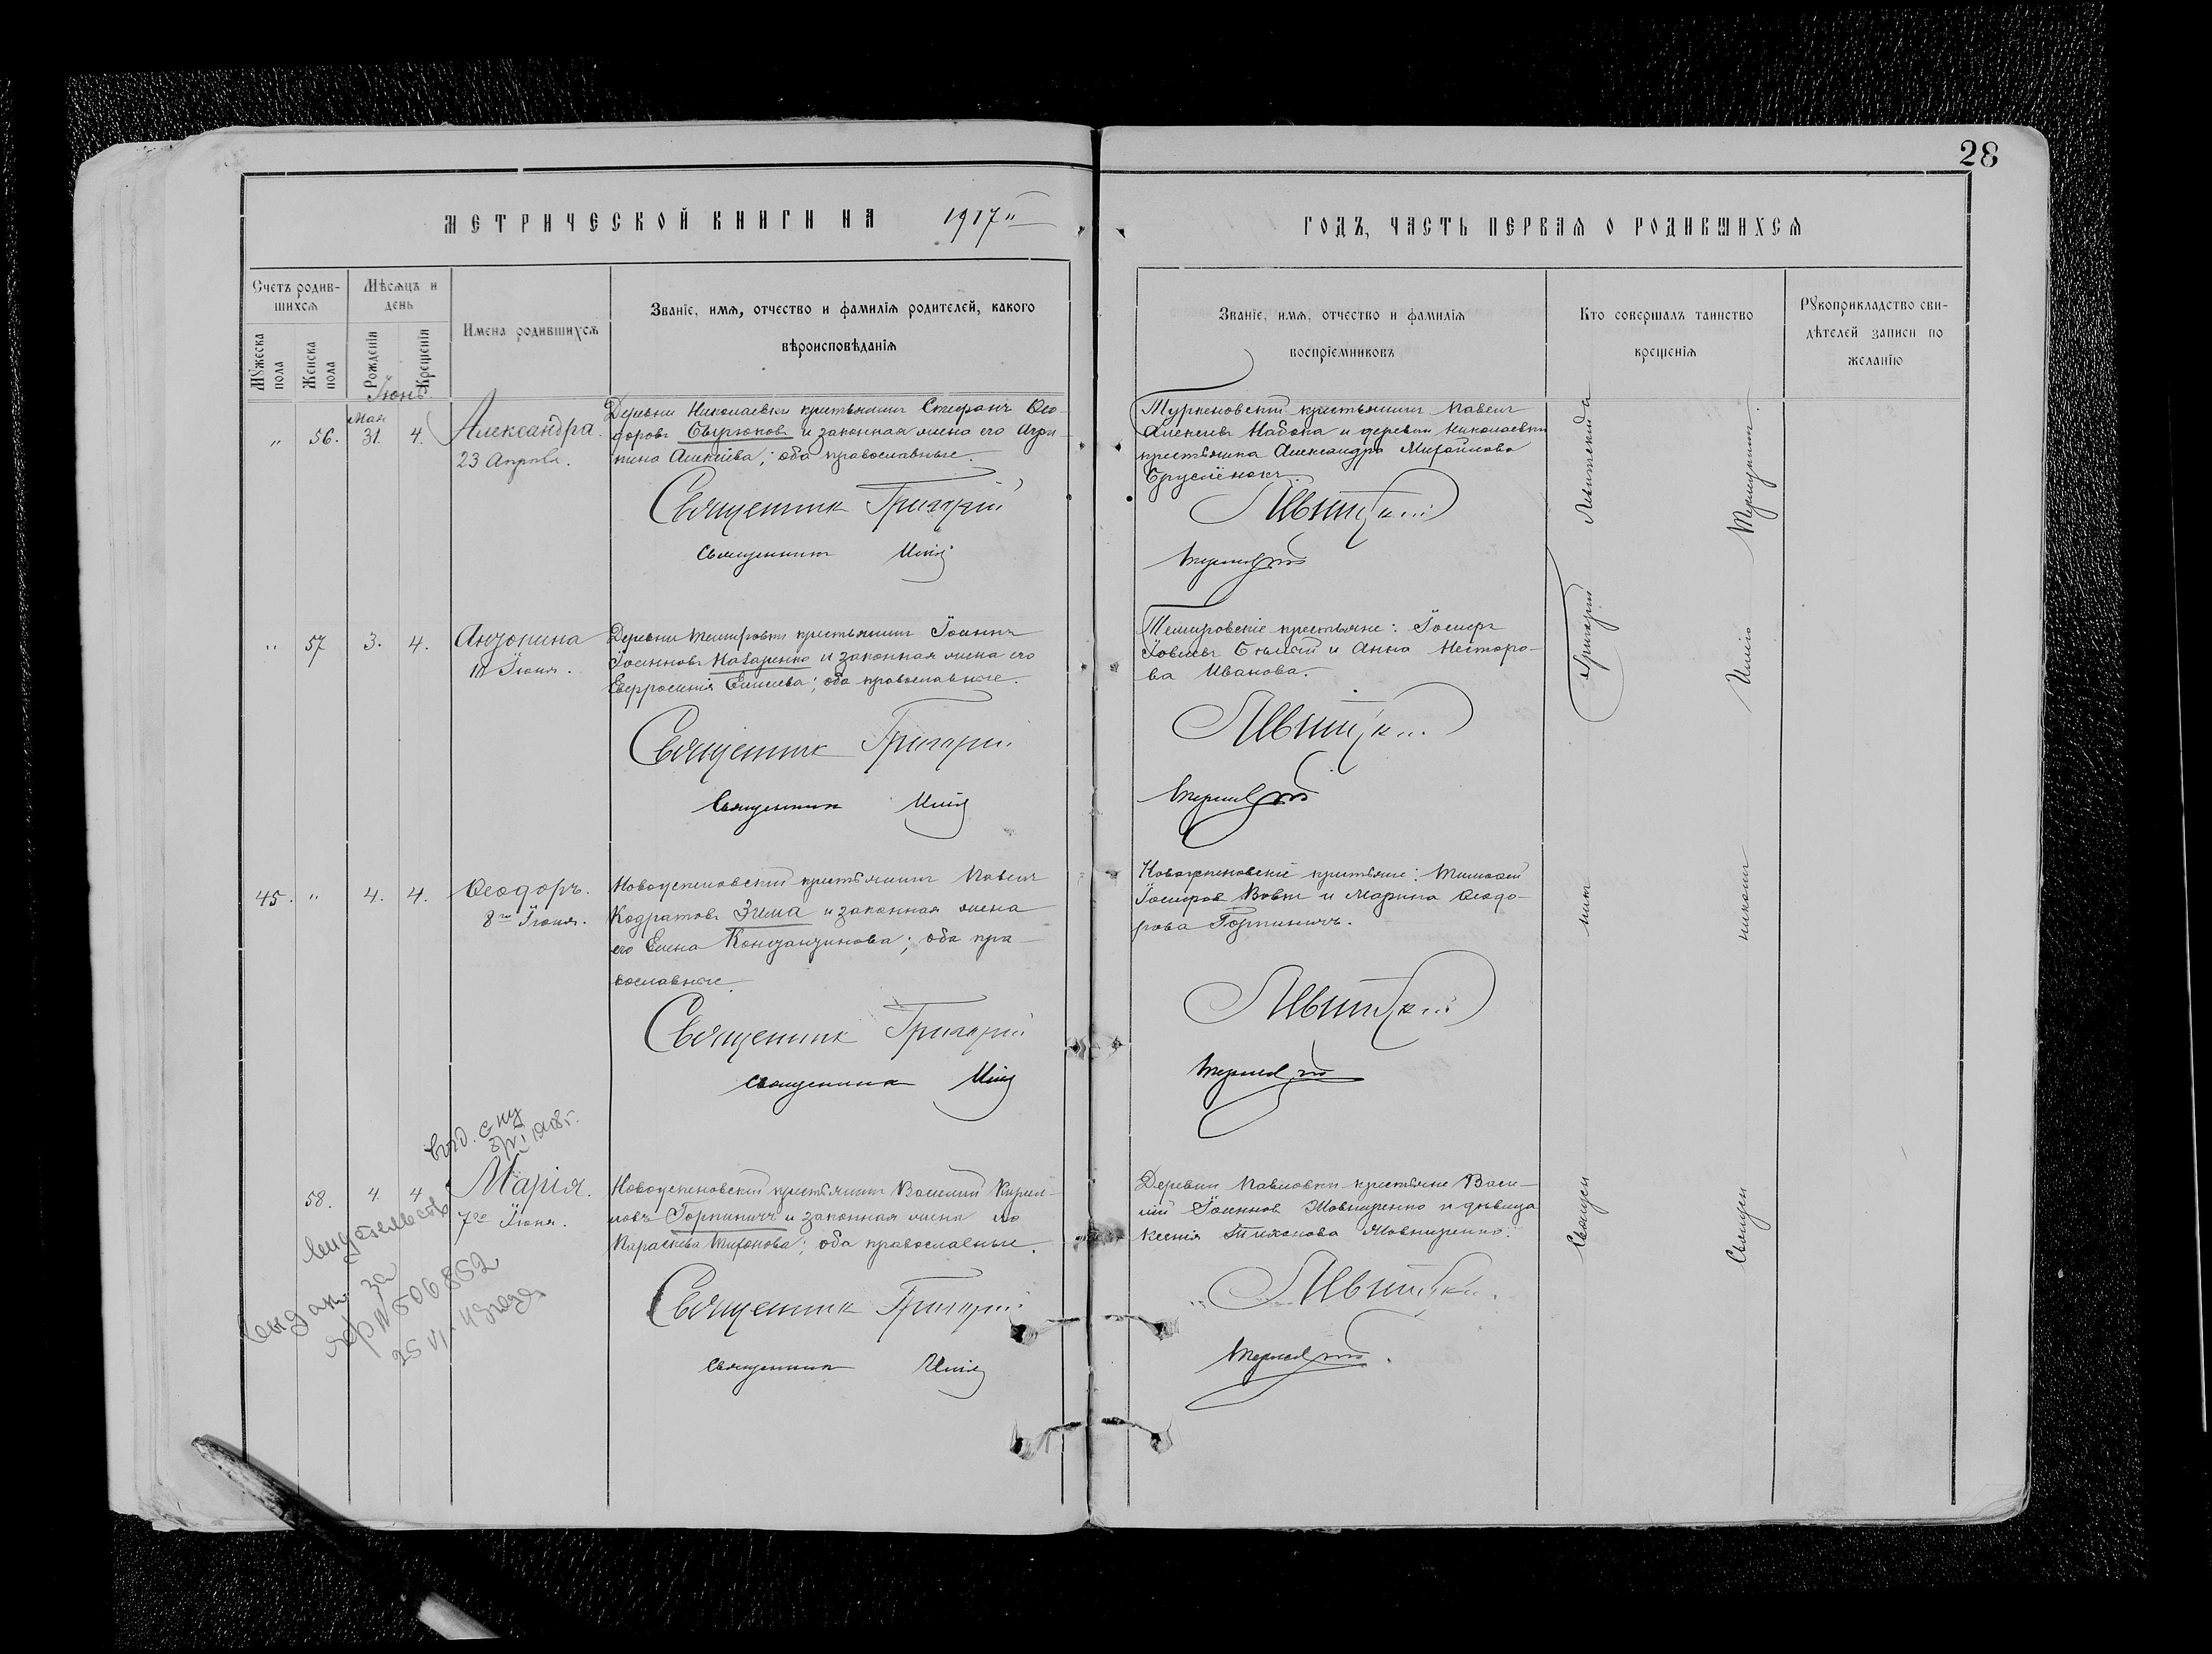 28
МЕТРИЧЕСКОЙ КНИГИ НА 1917
ГОДЪ, ЧАСТЬ ПЕРВАЯ О РОДИВШИХСЯ
Счетъ родив-
шихся
Мужеска пола
Женска пола
Мѣсяцъ и
день
Рожденія
Крещенія
Имена родившихся
Званіе, имя, отчество и фамилія родителей, какого
вѣроисповѣданія
Званіе, имя, отчество и фамилія
воспріемниковъ
Кто совершалъ таинство
крещенія
Рукоприкладство сви-
дѣтелей записи по
желанію
Іюнь
" 56. Мая 31. 4. Александра.
23 Апрѣля.
Деревни Николаевки крестьянинъ Стефанъ Ѳео-
доровъ Свирюковъ и законная жена его Агри-
пина Алексѣева; оба православные.
Священник Григорій
Священникъ Илія
Туркеновскій крестьянинъ Павелъ
Алексѣевъ Набока и деревни Николаевки
крестьянка Александра Михайлова
Левитскій
" 57 3. 4. Антонина
Іюня.
Деревни Темировки крестьянинъ Іоаннъ
Іоанновъ Назаренко и законная жена его
Евфросинія Елисеева; оба православные.
Священник Григорій
Священникъ Илія
Темировскіе крестьяне: Іосифъ
Іовлевъ и Анна Несторо-
ва Иванова.
Левитскій
45. " 4. 4. Ѳеодоръ.
8го Іюня.
Новоуспеновскій крестьянинъ Павелъ
Кодратовъ Зима и законная жена
его Елена Константинова; оба пра-
вославные.
Священник Григорій
Священникъ Илія
Новоуспеновскіе крестьяне: Тимофей
Іосифовъ Вовкъ и Марина Ѳеодо-
рова Горпиничъ.
Левитскій
58. 4. 4 Марія.
7го Іюня.
Новоуспеновскій крестьянинъ Василій Кирил-
ловъ Горпиничъ и законная жена его
Параскева Тихонова; оба православные.
Священник Григорій
Священникъ Илія
Деревни Павловки крестьяне Васи-
лій Іоанновъ Жовниренко и дѣвица
Ксенія Тихонова Жовниренко.
Левитскій
Священ никъ Григорій Левитскій
Священ никъ Илія
свидетельство
выдано за
№ 506852